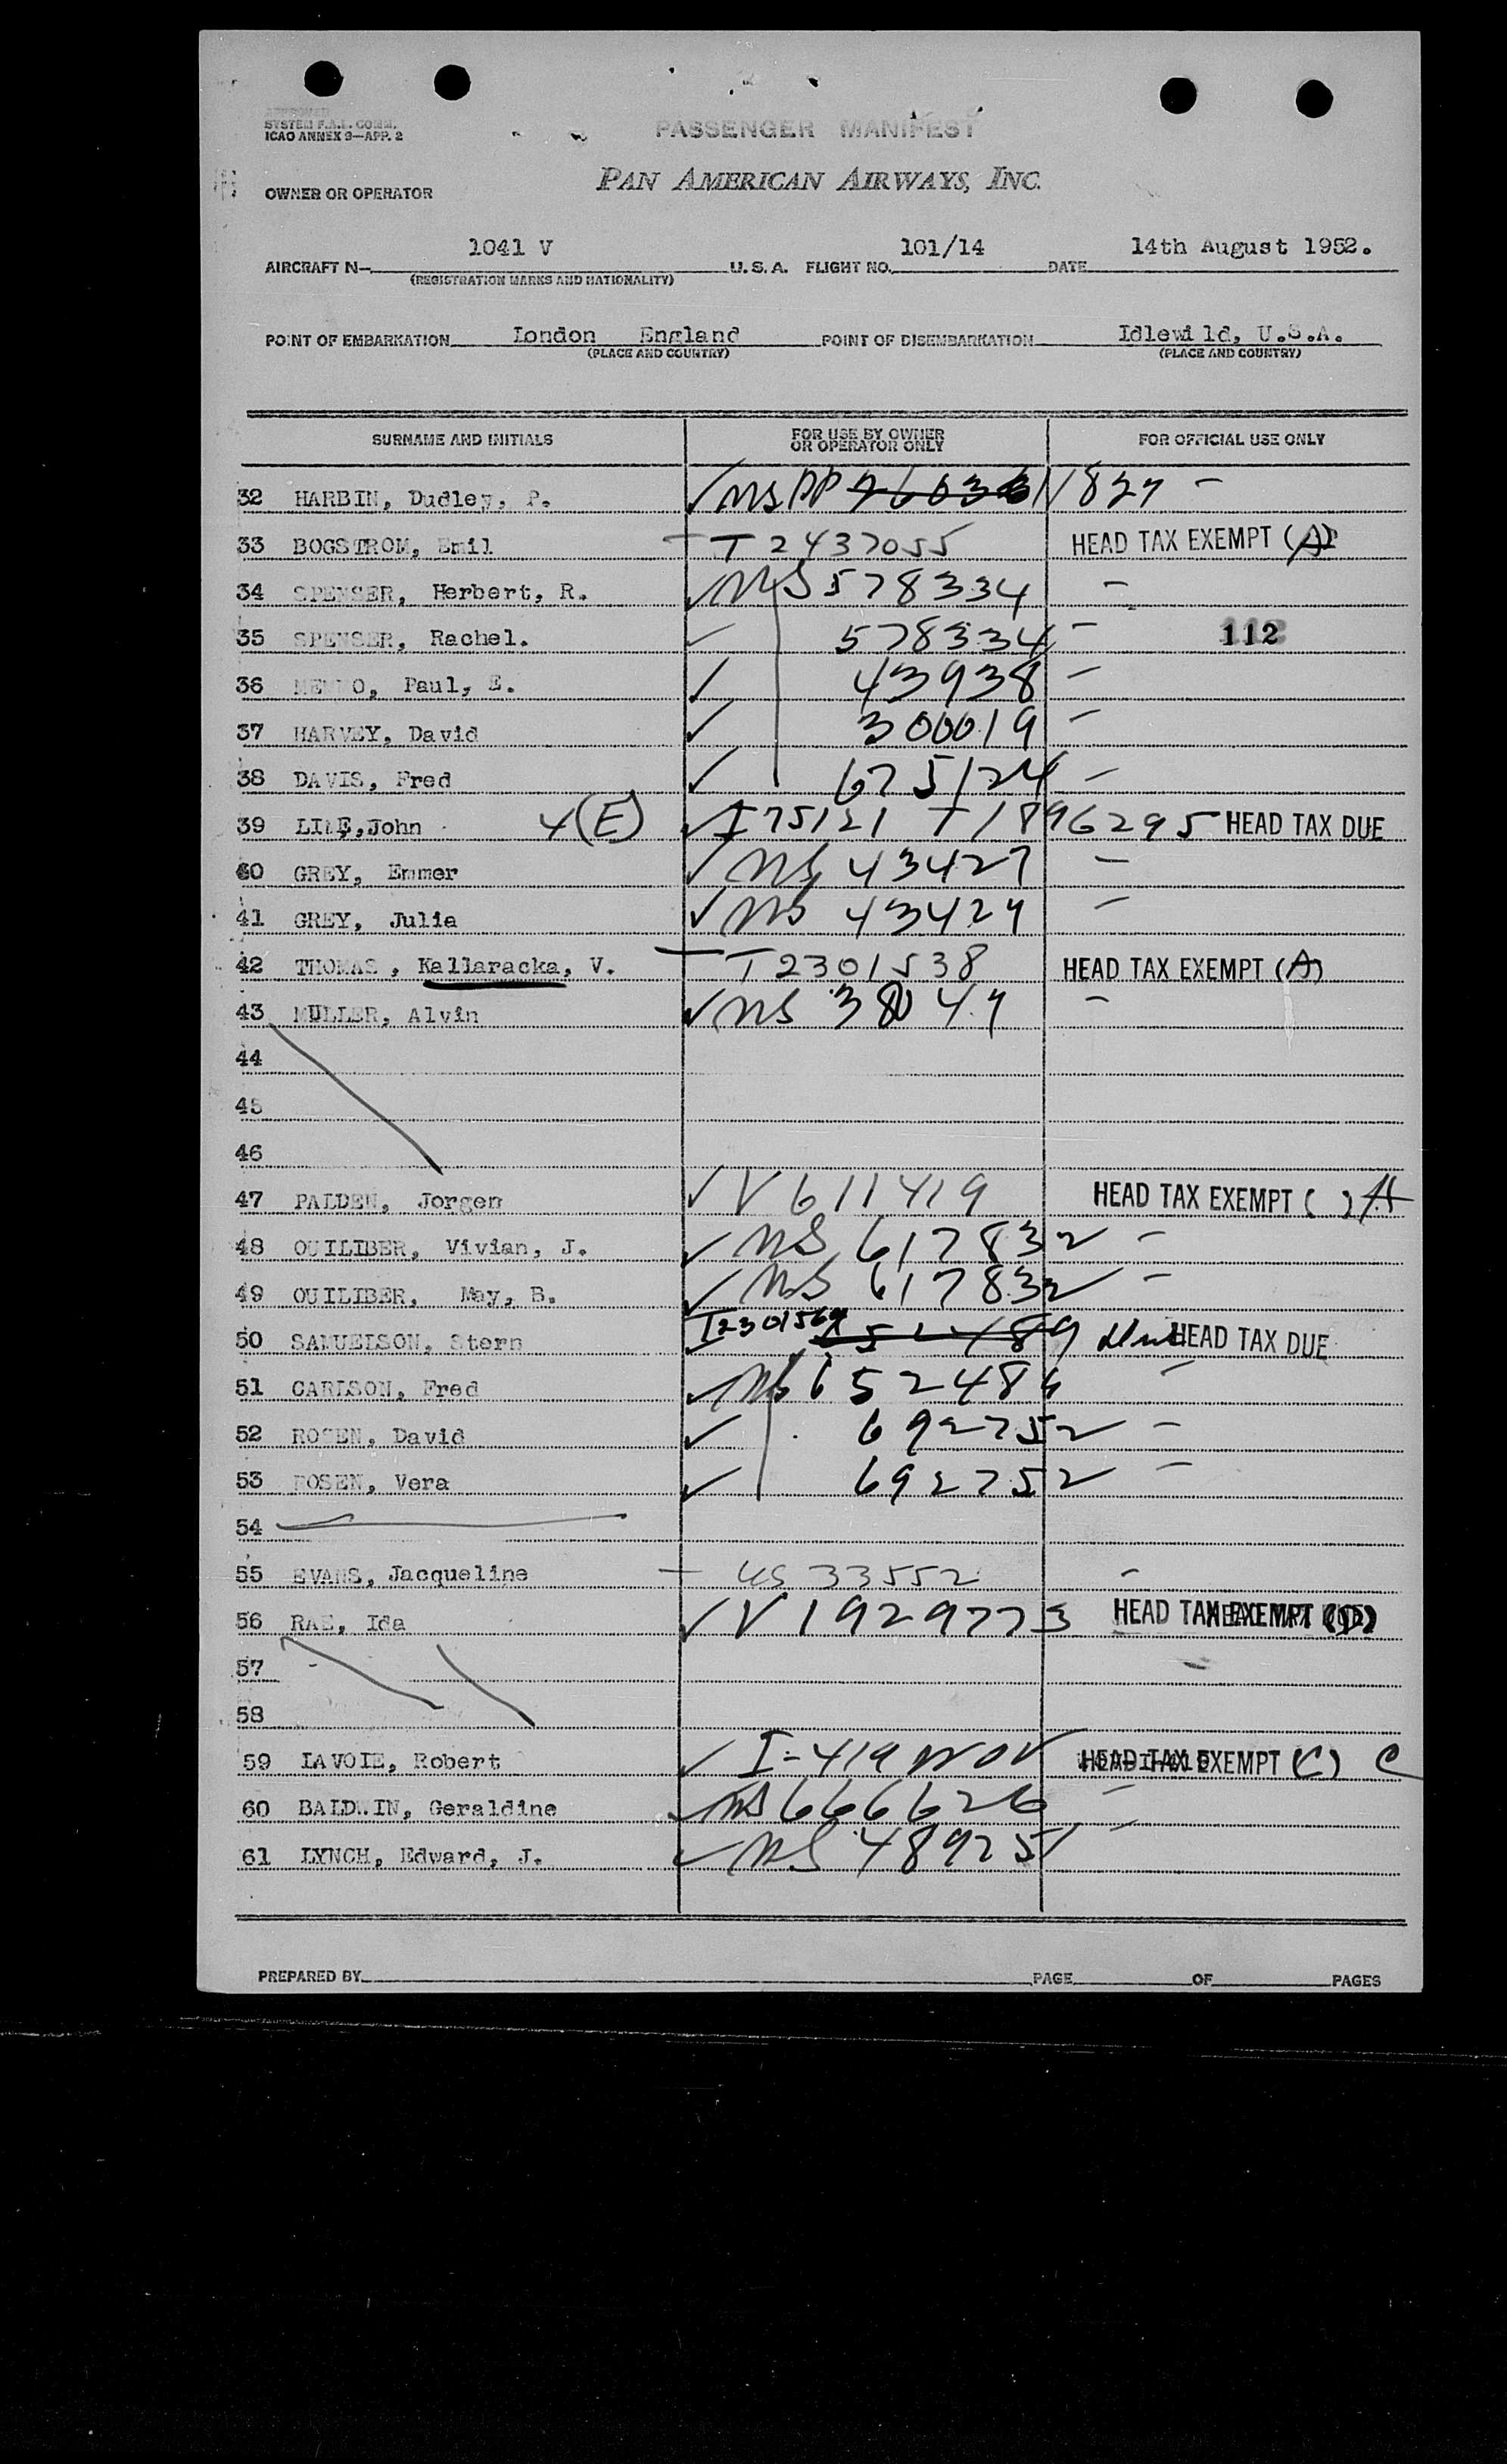 SYSTEM F.A.L. COMM.
ICAO ANNEX 9—APP. 2
PASSENGER MANIFEST
OWNER OR OPERATOR
PAN AMERICAN AIRWAYS, INC.
AIRCRAFT N— 1041 V U.S.A. FLIGHT NO. 101/14 DATE 14th August 1952.
(REGISTRATION MARKS AND NATIONALITY)
POINT OF EMBARKATION London England POINT OF DISEMBARKATION Idlewild, U.S.A.
(PLACE AND COUNTRY) (PLACE AND COUNTRY)
SURNAME AND INITIALS FOR USE BY OWNER OR OPERATOR ONLY FOR OFFICIAL USE ONLY
32 HARBIN, Dudley, P. ✓ 1827 —
33 BOGSTROM, Emil — T 2437055 HEAD TAX EXEMPT (A)
34 SPENSER, Herbert, R. ✓ US 578334 —
35 SPENSER, Rachel. ✓ 578334 — 112
36 Paul, E. ✓ 43938 —
37 HARVEY, David ✓ 300019 —
38 DAVIS, Fred ✓ 675124 —
39 John 4(E) ✓ I75121 T1896295 HEAD TAX DUE
40 GREY, Emmer ✓ US 43427 —
41 GREY, Julia ✓ US 43427 —
42 THOMAS, Kallaracka, V. — T 2301538 HEAD TAX EXEMPT (A)
43 MULLER, Alvin ✓ US —
44
45
46
47 PALDEN, Jorgen ✓ V 611419 HEAD TAX EXEMPT ( ) A
48 OUILIBER, Vivian, J. ✓ US 617832 —
49 OUILIBER, May, B. ✓ US 617832 —
50 SAMUELSON, Stern T2301569 HEAD TAX DUE
51 CARLSON, Fred ✓ US 652486 —
52 ROSEN, David ✓ 692752 —
53 ROSEN, Vera ✓ 692752 —
54
55 EVANS, Jacqueline — US 33552 —
56 RAE, Ida ✓ V 1929773 HEAD TAX EXEMPT
57
58
59 LAVOIE, Robert ✓ I-419 HEAD TAX EXEMPT (C) C
60 BALDWIN, Geraldine ✓ US 666626 —
61 LYNCH, Edward, J. ✓ US 489251 —
PREPARED BY PAGE OF PAGES